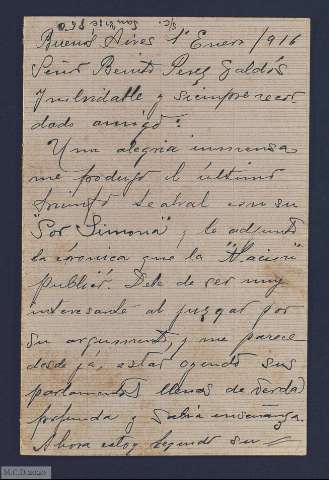 S/c
San José 860
Buenos Aires 1º Enero /916
Señor Benito Perez Galdós
Inolvidable y siempre recor
dado amigo:
Una alegria inmensa
me produjo el último
triunfo teatral con su
"Sor Simona", y le adjunto
la crónica que la "Nacion"
publicó. Debe de ser muy
interesante al juzgar por
su argumento, y me parece
desde já, estar oyendo sus
parlamentos llenos de verdad
profunda y sabia enseñanza.
Ahora estoy leyendo su
M.C.D 2020